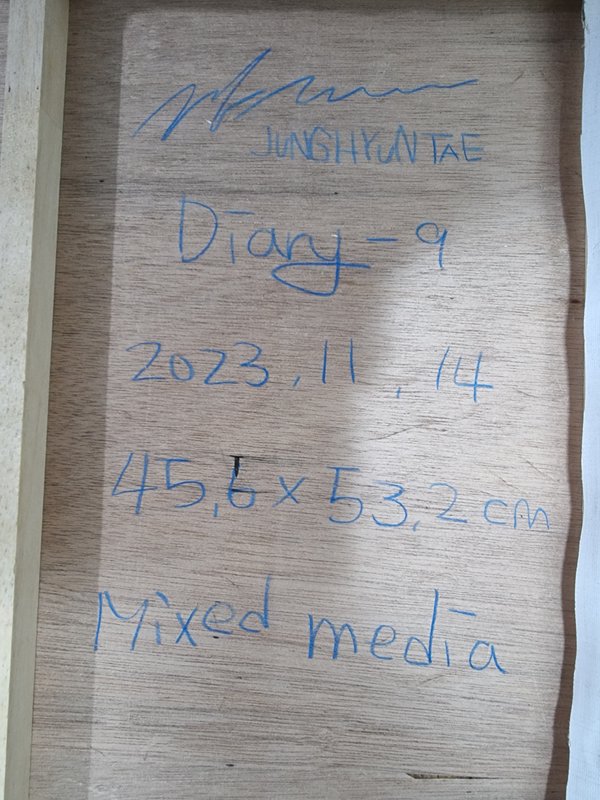 JUNGHYUNTAE
Diary-9
2023.11.14
45.6x53.2cm
Mixed media